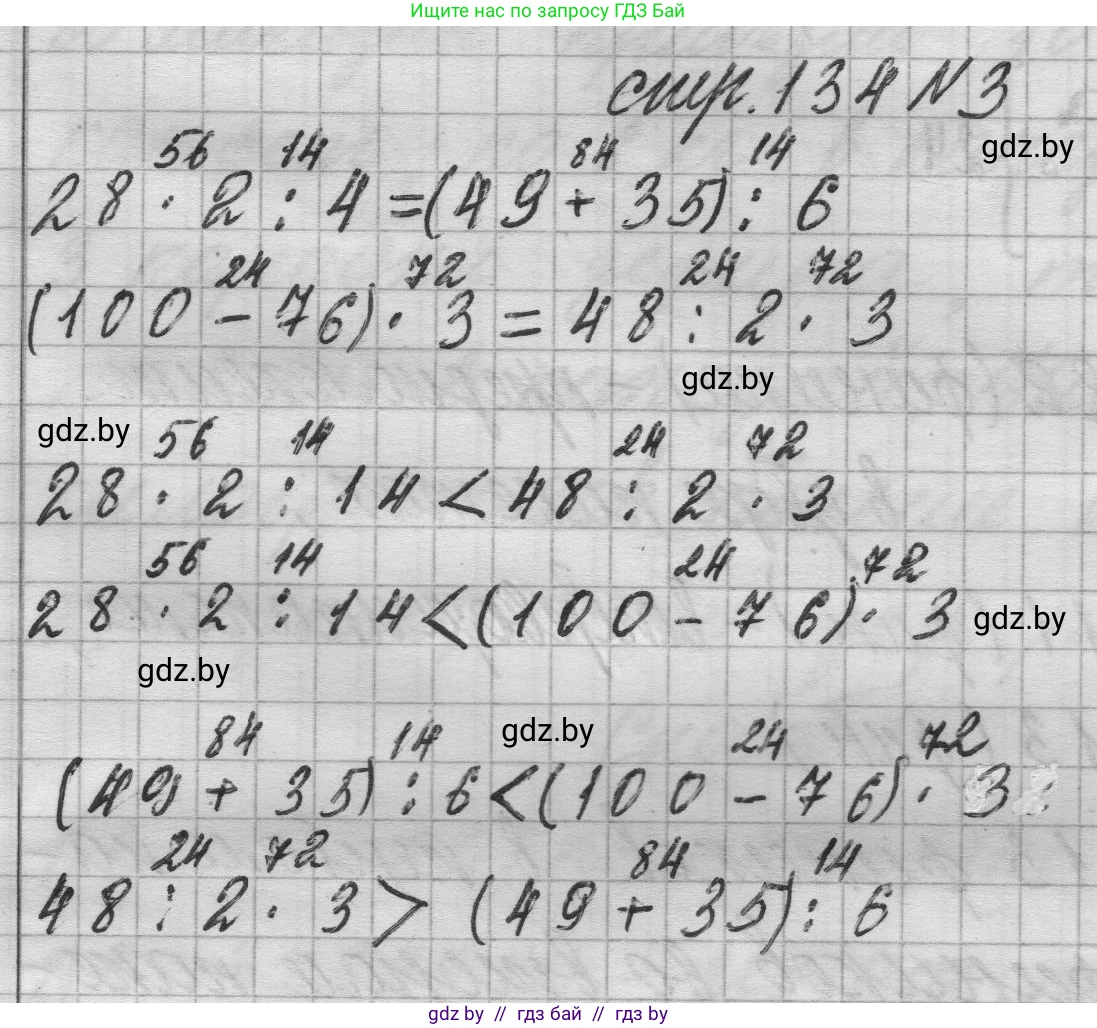 Ищите нас по запросу ГДЗ Бай
стр. 134 N 3
gdz.by
56 14 84 14
28 · 2 : 4 = (49 + 35) : 6
24 72 24 72
(100 - 76) · 3 = 48 : 2 · 3
gdz.by
gdz.by
56 14 24 72
28 · 2 : 14 < 48 : 2 · 3
56 14 24 72
28 · 2 : 14 < (100 - 76) · 3
gdz.by
gdz.by
gdz.by
84 14 24 72
(49 + 35) : 6 < (100 - 76) · 3
24 72 84 14
48 : 2 · 3 > (49 + 35) : 6
gdz by // гдз бай // гдз by